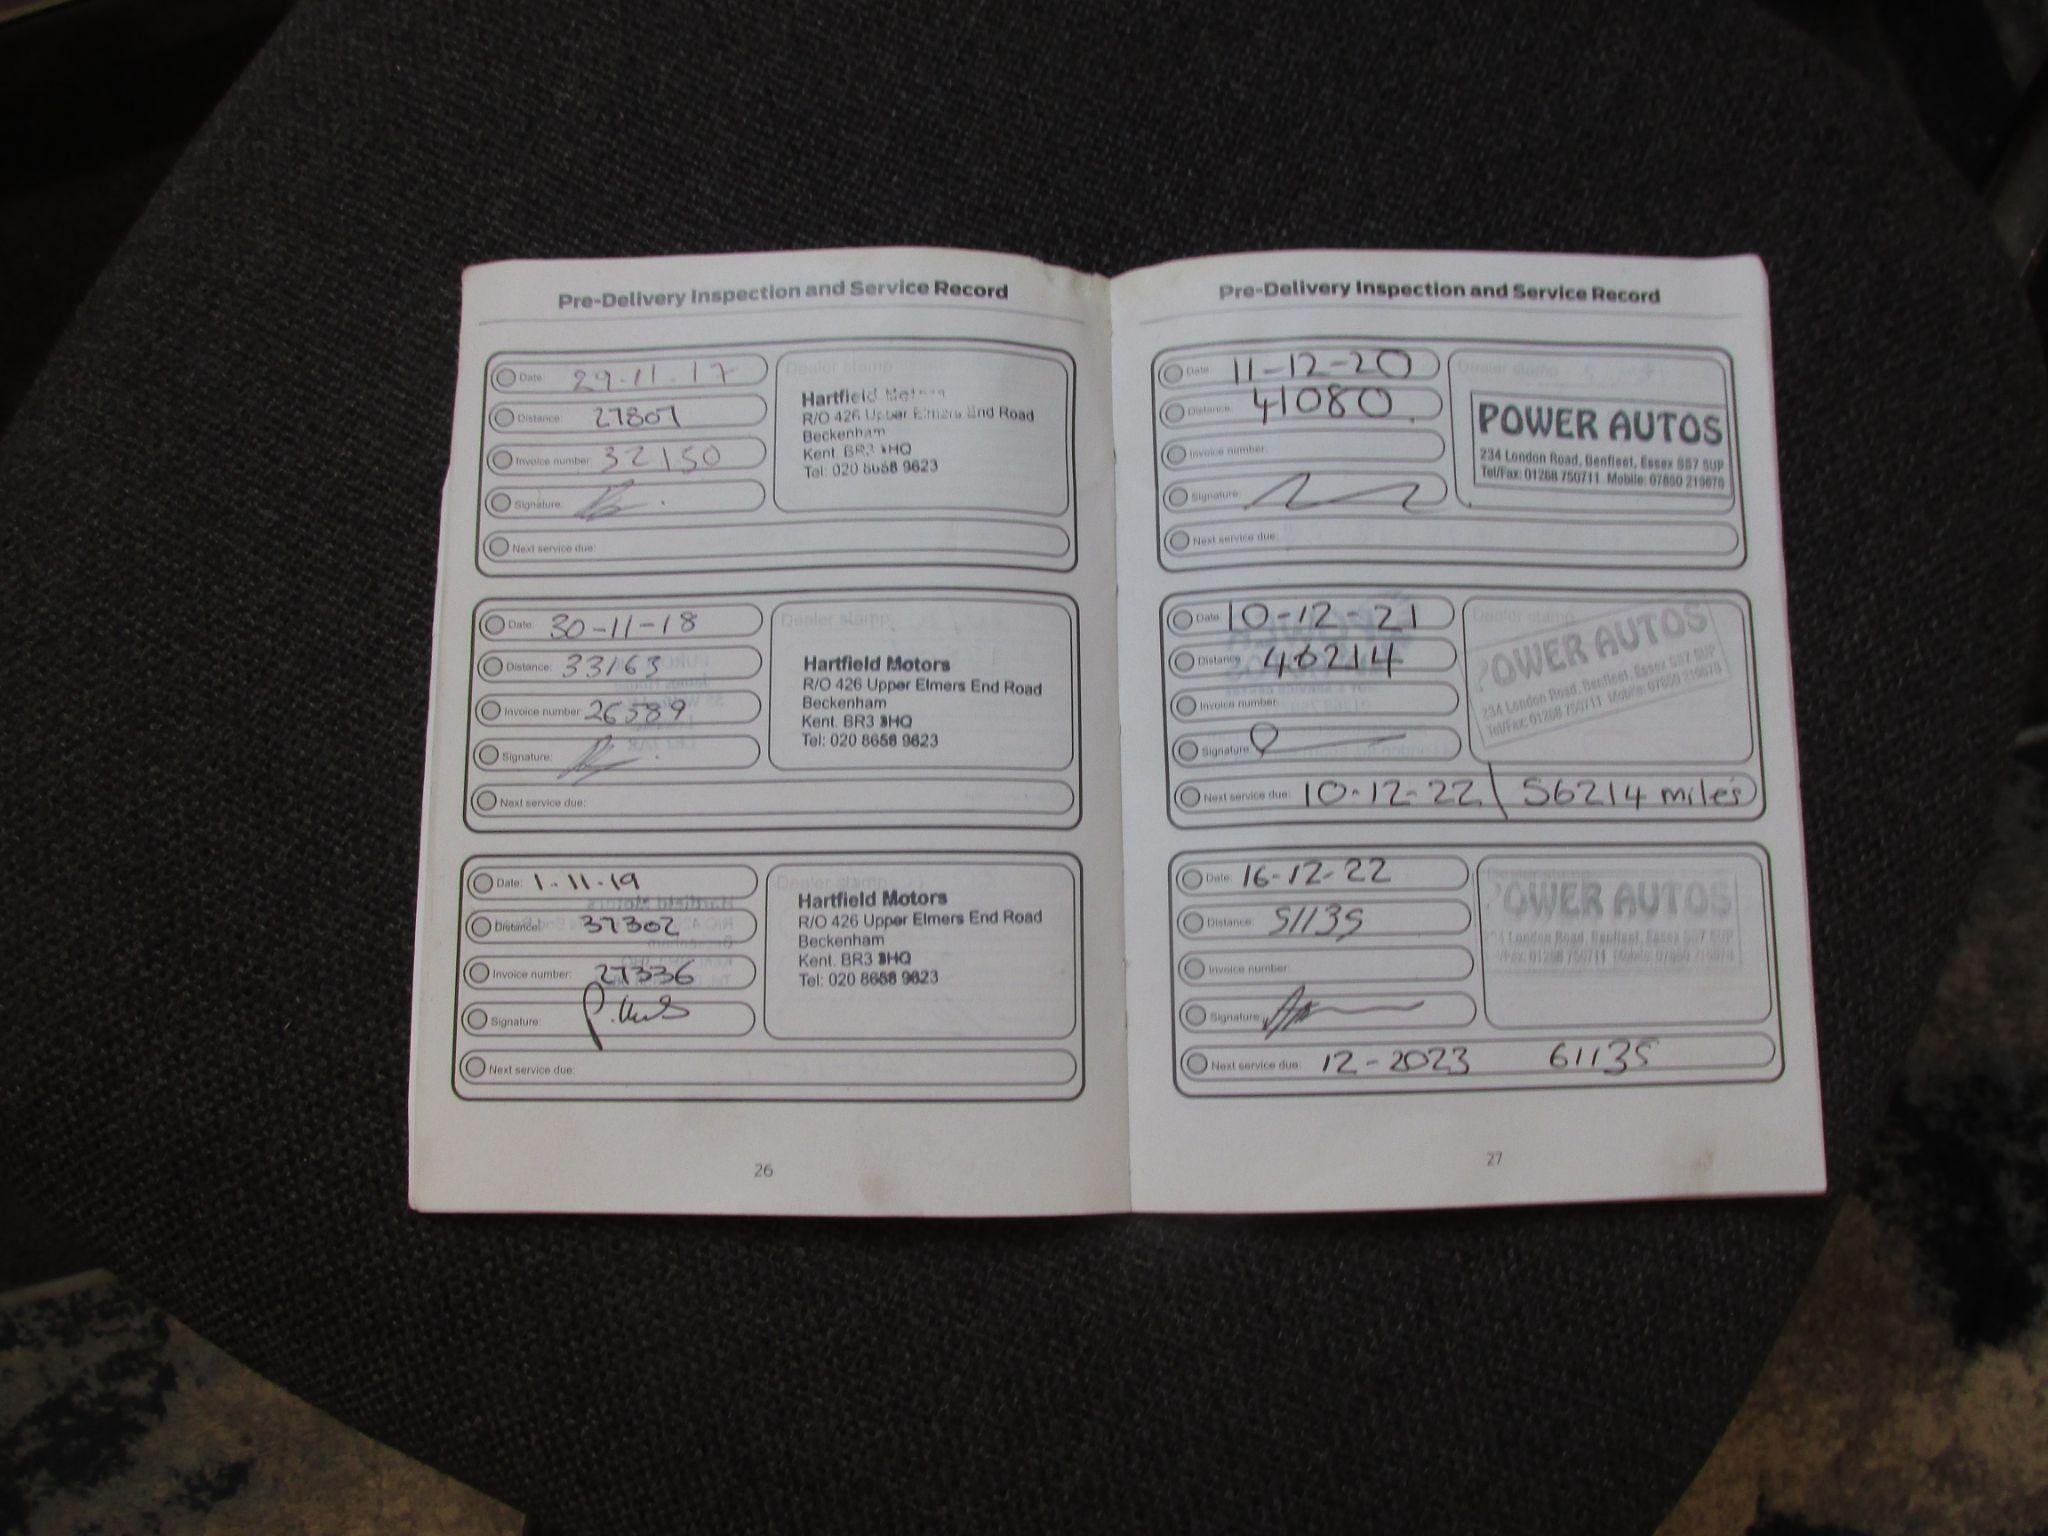 Pre-Delivery Inspection and Service Record
Date: 29-11-17
Distance: 27807
Invoice number: 32150
Signature:
Next service due:
Dealer stamp
Hartfield Motors
R/O 426 Upper Elmers End Road
Beckenham
Kent. BR3 3HQ
Tel: 020 8658 9623
Date: 30-11-18
Distance: 33163
Invoice number: 26589
Signature:
Next service due:
Dealer stamp
Hartfield Motors
R/O 426 Upper Elmers End Road
Beckenham
Kent. BR3 3HQ
Tel: 020 8658 9623
Date: 1-11-19
Distance: 37302
Invoice number: 27336
Signature:
Next service due:
Dealer stamp
Hartfield Motors
R/O 426 Upper Elmers End Road
Beckenham
Kent. BR3 3HQ
Tel: 020 8658 9623
26
Pre-Delivery Inspection and Service Record
Date: 11-12-20
Distance: 41080
Invoice number:
Signature:
Next service due:
Dealer stamp
POWER AUTOS
234 London Road, Benfleet, Essex SS7 5UP
Tel/Fax: 01268 750711 Mobile: 07850 219678
Date: 10-12-21
Distance: 46214
Invoice number:
Signature:
Next service due: 10-12-22 / 56214 miles
Dealer stamp
POWER AUTOS
234 London Road, Benfleet, Essex SS7 5UP
Tel/Fax: 01268 750711 Mobile: 07850 219678
Date: 16-12-22
Distance: 51135
Invoice number:
Signature:
Next service due: 12-2023 61135
Dealer stamp
POWER AUTOS
London Road, Benfleet, Essex SS7 5UP
01268 750711 Mobile: 07850 219678
27